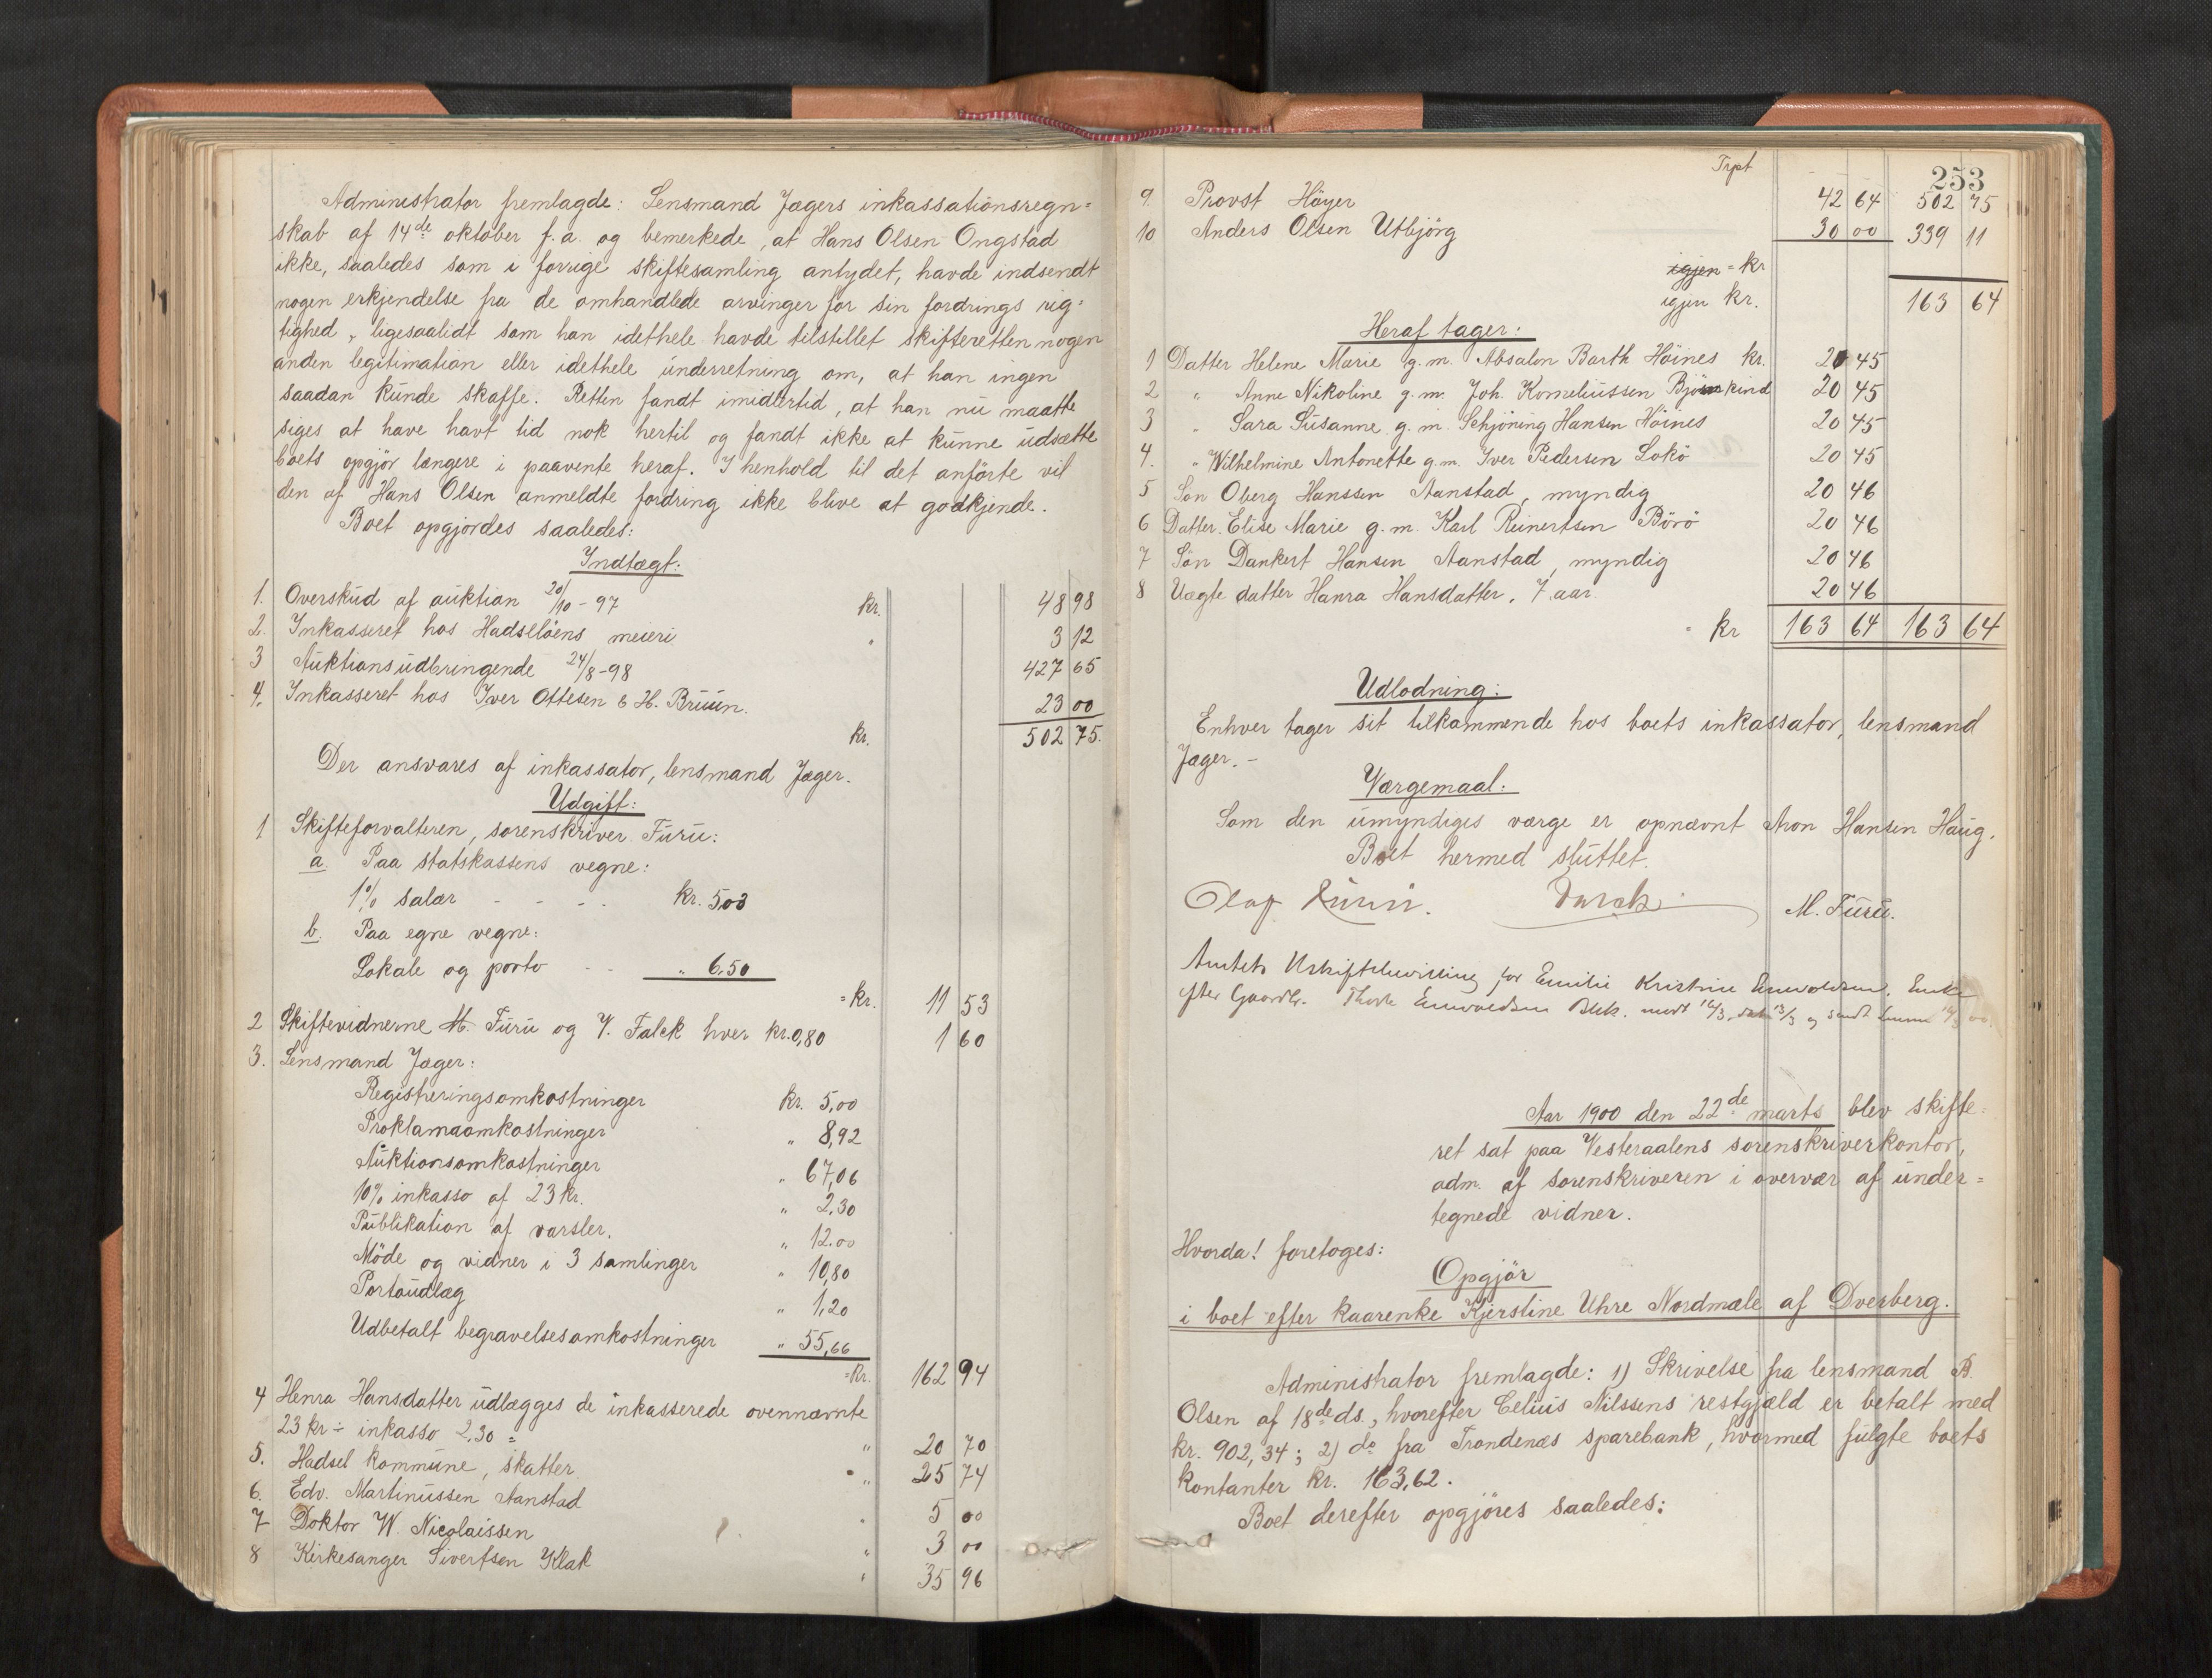 Administrator fremlagde: Lensmand Jægers inkassationsregn=
skab af 14de oktober f.a. og bemerkede, at Hans Olsen Ongstad
ikke, saaledes som i forrige skiftesamling antydet, havde indsendt
nogen erkjendelse fra de omhandlede arvinger for sin fordrings rig=
tighed, ligesaalidt som han idethele havde tilstillet skifteretten nogen
anden legitimation eller idethele underretning om, at han ingen
saadan kunde skaffe. Retten fandt imidlertid, at han nu maatte
siges at have havt tid nok hertil og fandt ikke at kunne udsætte
boets opgjör længere i paavente heraf. I henhold til det anförte vil
den af Hans Olsen anmeldte fordring ikke blive at godkjende.
Boet opgjordes saaledes:
Indtægt:
1. Overskud af auktion 20/10-97 kr. 48 98
2. Inkasseret hos Hadselöens meieri " 3 12
3 Auktionsudbringende 24/8-98 427 65
4. Inkasseret hos Iver Ottesen & H. Bruun. 23 00
kr. 502 75.
Der ansvares af inkassator, lensmand Jæger.
Udgift:
1 Skifteforvalteren, sorenskriver Furu:
a. Paa statskassens vegne:
1% salær - - - - kr. 5,03
b. Paa egne vegne:
Lokale og porto - - " 6,50
= kr. 11 53
2 Skiftevidnerne M. Furu og V. Falck hver kr. 0,80 1 60
3. Lensmand Jæger:
Registreringsomkostninger kr. 5,00
Proklamaomkostninger " 8,92
Auktionsomkostninger " 67,06
10% inkasso af 23 kr. " 2,30
Publikation af varsler. " 12.00
Möde og vidner i 3 samlinger " 10,80
Portoudlæg " 1,20
Udbetalt begravelsesomkostninger " 55,66
= kr. 162 94
4 Henra Hansdatter udlægges de inkasserede ovennævnte
23 kr ÷ inkasso 2,30 = " 20 70
5. Hadsel kommune, skatter " 25 74
6. Edv. Martinussen Aanstad " 5 00
7 Doktor W. Nicolaissen " 3 00
8 Kirkesanger Sivertsen Klak " 35 96
253
Trpt
9. Provst Höyer 42 64 502 75
10 Anders Olsen Utbjörg 30 00 339 11
igjen = kr
igjen kr. 163 64
Heraf tager:
1 Datter Helene Marie g.m. Absalon Barth Höines kr. 20 45
2 " Anne Nikoline g.m. Joh. Korneliussen 20 45
3 " Sara Susanne g.m. Schjöning Hansen Höines 20 45
4. " Wilhelmine Antonette g.m. Iver Pedersen Lokö 20 45
5 Sön Oberg Hanssen Aanstad, myndig 20 46
6 Datter Elise Marie g.m. Karl Reinertsen Börö 20 46
7 Sön Dankert Hansen Aanstad, myndig 20 46
8 Uægte datter Hanra Hansdatter, 7 aar 20 46
= kr 163 64 163 64
Udlodning:
Enhver tager sit tilkommende hos boets inkassator, lensmand
Jæger. -
Værgemaal:
Som den umyndiges værge er opnævnt Aron Hansen Haug.
Boet hermed sluttet.
Olaf M. Furu.
Amtets Uskiftebevilling for Emilie Kristine Enke
efter Gaardbr.
Aar 1900 den 22de marts blev skifte=
ret sat paa Vesteraalens sorenskriverkontor,
adm. af sorenskriveren i overvær af under=
tegnede vidner.
Hvorda! foretoges:
Opgjör
i boet efter kaarenke Kjerstine Uhre Nordmæle af Dverberg.
Administrator fremlagde: 1) Skrivelse fra lensmand B.
Olsen af 18de ds., hvorefter Celius Nilssens restgjæld er betalt med
kr. 902,34; 2) do fra Trondenæs sparebank, hvormed fulgte boets
kontanter kr. 163,62.
Boet derefter opgjöres saaledes: